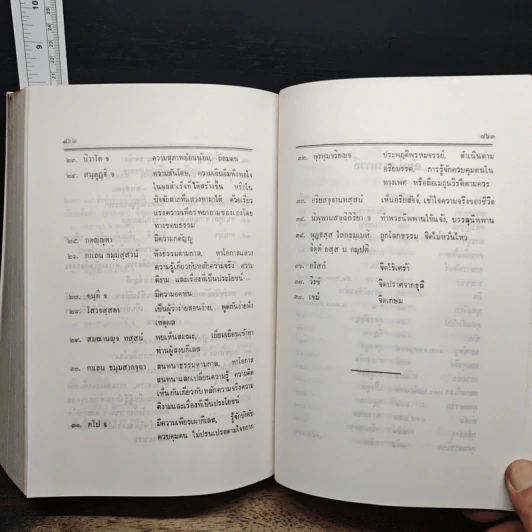 ๘๖๒
๒๓. นิวาโต จ ความสุภาพอ่อนน้อม, ถ่อมตน
๒๔. สนฺตุฏฺฐี จ ความสันโดษ, ความเอิบอิ่มพึงพอใจ
ในผลสำเร็จที่ได้สร้างขึ้น หรือใน
ปัจจัยลาภที่แสวงหามาได้ ด้วยเรี่ยว
แรงความเพียรพยายามของตนเองโดย
ทางชอบธรรม
๒๕. กตญฺญุตา มีความกตัญญู
๒๖. กาเลน ธมฺมสฺสวนํ ฟังธรรมตามกาล, หาโอกาสแสวง
ความรู้เกี่ยวกับหลักความจริง ความ
ดีงาม และเรื่องที่เป็นประโยชน์
๒๗. ขนฺตี จ มีความอดทน
๒๘. โสวจสฺสตา เป็นผู้ว่าง่ายสอนง่าย, พูดกันง่ายฟัง
เหตุผล
๒๙. สมณานญฺจ ทสฺสนํ พบเห็นสมณะ, เยี่ยมเยือนเข้าหา
ท่านผู้สงบกิเลส
๓๐. กาเลน ธมฺมสากจฺฉา สนทนาธรรมตามกาล, หาโอกาส
สนทนาแลกเปลี่ยนความรู้ ความคิด
เห็นกันเกี่ยวกับหลักความจริงความ
ดีงามและเรื่องที่เป็นประโยชน์
๓๑. ตโป จ มีความเพียรเผากิเลส, รู้จักบังคับ
ควบคุมตน ไม่ปรนเปรอตามใจอยาก
๘๖๓
๓๒. พฺรหฺมจริยญฺจ ประพฤติพรหมจรรย์, ดำเนินตาม
อริยมรรค, การรู้จักควบคุมตนใน
ทางเพศ หรือถือเมถุนวิรัติตามควร
๓๓. อริยสจฺจานทสฺสนํ เห็นอริยสัจจ, เข้าใจความจริงของชีวิต
๓๔. นิพฺพานสจฺฉิกิริยา จ ทำพระนิพพานให้แจ้ง, บรรลุนิพพาน
๓๕. ผุฏฺฐสฺส โลกธมฺเมหิ ถูกโลกธรรม จิตไม่หวั่นไหว
จิตฺตํ ยสฺส น กมฺปติ
๓๖. อโสกํ จิตไร้เศร้า
๓๗. วิรชํ จิตปราศจากธุลี
๓๘. เขมํ จิตเกษม